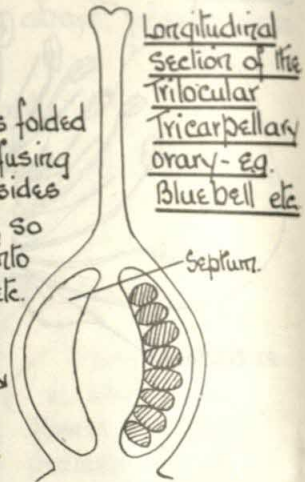 Longitudinal
Section of the
Trilocular
Tricarpellary
ovary - eg.
Bluebell etc
s folded
fusing
sides
so
nto
etc.
Septum.